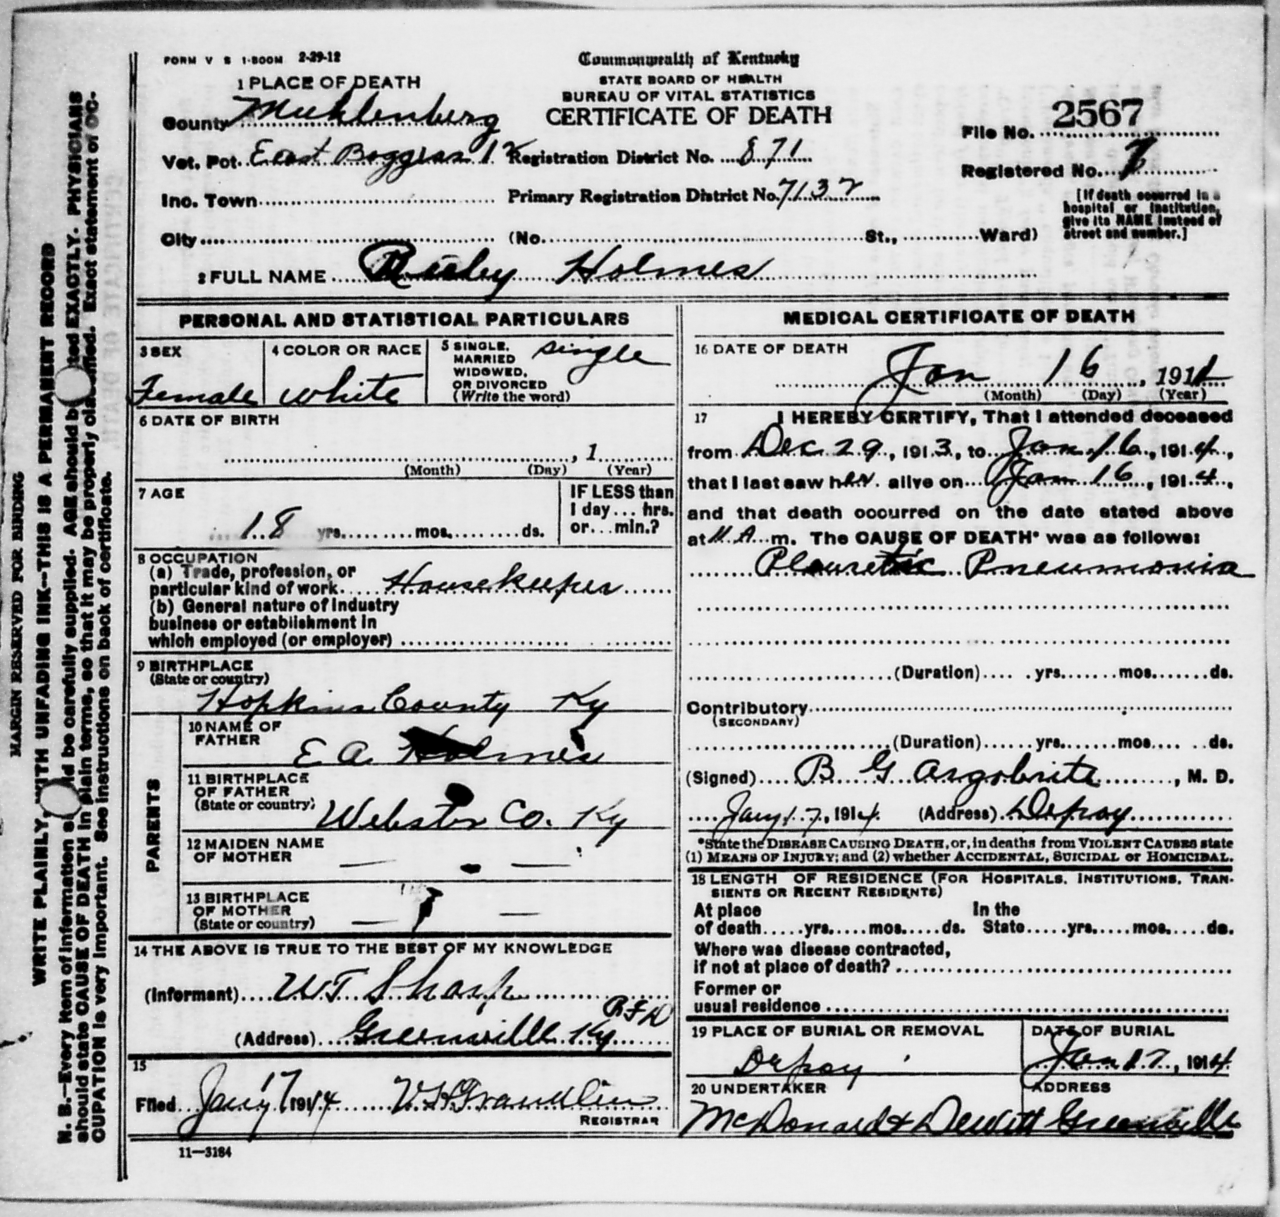 FORM V S 1-500M 2-29-12
Commonwealth of Kentucky
STATE BOARD OF HEALTH
BUREAU OF VITAL STATISTICS
CERTIFICATE OF DEATH
1 PLACE OF DEATH
County Muhlenberg
Vot. Pct. East Boggess 12 Registration District No. 871
Inc. Town Primary Registration District No. 7132
City (No. St., Ward)
File No. 2567
Registered No.
[If death occurred in a
hospital or institution,
give its NAME instead of
street and number.]
2 FULL NAME Holmes
PERSONAL AND STATISTICAL PARTICULARS
3 SEX
Female
4 COLOR OR RACE
white
5 SINGLE,
MARRIED
WIDOWED,
OR DIVORCED
(Write the word)
single
6 DATE OF BIRTH
, 1
(Month) (Day) (Year)
7 AGE
18 yrs. mos. ds.
IF LESS than
1 day ... hrs.
or ... min.?
8 OCCUPATION
(a) Trade, profession, or
particular kind of work Housekeeper
(b) General nature of industry
business or establishment in
which employed (or employer)
9 BIRTHPLACE
(State or country)
Hopkins County Ky
PARENTS
10 NAME OF
FATHER
E A Holmes
11 BIRTHPLACE
OF FATHER
(State or country)
Webster Co. Ky
12 MAIDEN NAME
OF MOTHER
13 BIRTHPLACE
OF MOTHER
(State or country)
14 THE ABOVE IS TRUE TO THE BEST OF MY KNOWLEDGE
(Informant) W T Sharp
R F D
(Address) Greenville Ky
15
Filed Jany 17 1914
REGISTRAR
11—3184
MEDICAL CERTIFICATE OF DEATH
16 DATE OF DEATH
Jan 16, 1914
(Month) (Day) (Year)
17 I HEREBY CERTIFY, That I attended deceased
from Dec 29, 1913, to Jan 16, 1914,
that I last saw her alive on Jan 16, 1914,
and that death occurred on the date stated above
at 11 A m. The CAUSE OF DEATH* was as follows:
Pleuretic Pneumonia
(Duration) yrs. mos. ds.
Contributory
(SECONDARY)
(Duration) yrs. mos. ds.
(Signed) B G Argobrite, M. D.
Jany 17, 1914 (Address) Depoy
*State the DISEASE CAUSING DEATH, or, in deaths from VIOLENT CAUSES state
(1) MEANS OF INJURY; and (2) whether ACCIDENTAL, SUICIDAL or HOMICIDAL.
18 LENGTH OF RESIDENCE (FOR HOSPITALS, INSTITUTIONS, TRAN-
SIENTS OR RECENT RESIDENTS)
At place In the
of death yrs. mos. ds. State yrs. mos. ds.
Where was disease contracted,
if not at place of death?
Former or
usual residence
19 PLACE OF BURIAL OR REMOVAL
Depoy
DATE OF BURIAL
Jan 17, 1914
20 UNDERTAKER
ADDRESS
McDonald & Dewitt Greenville
MARGIN RESERVED FOR BINDING
WRITE PLAINLY, WITH UNFADING INK—THIS IS A PERMANENT RECORD
N. B.—Every item of information should be carefully supplied. AGE should be stated EXACTLY. PHYSICIANS
should state CAUSE OF DEATH in plain terms, so that it may be properly classified. Exact statement of OC-
CUPATION is very important. See instructions on back of certificate.